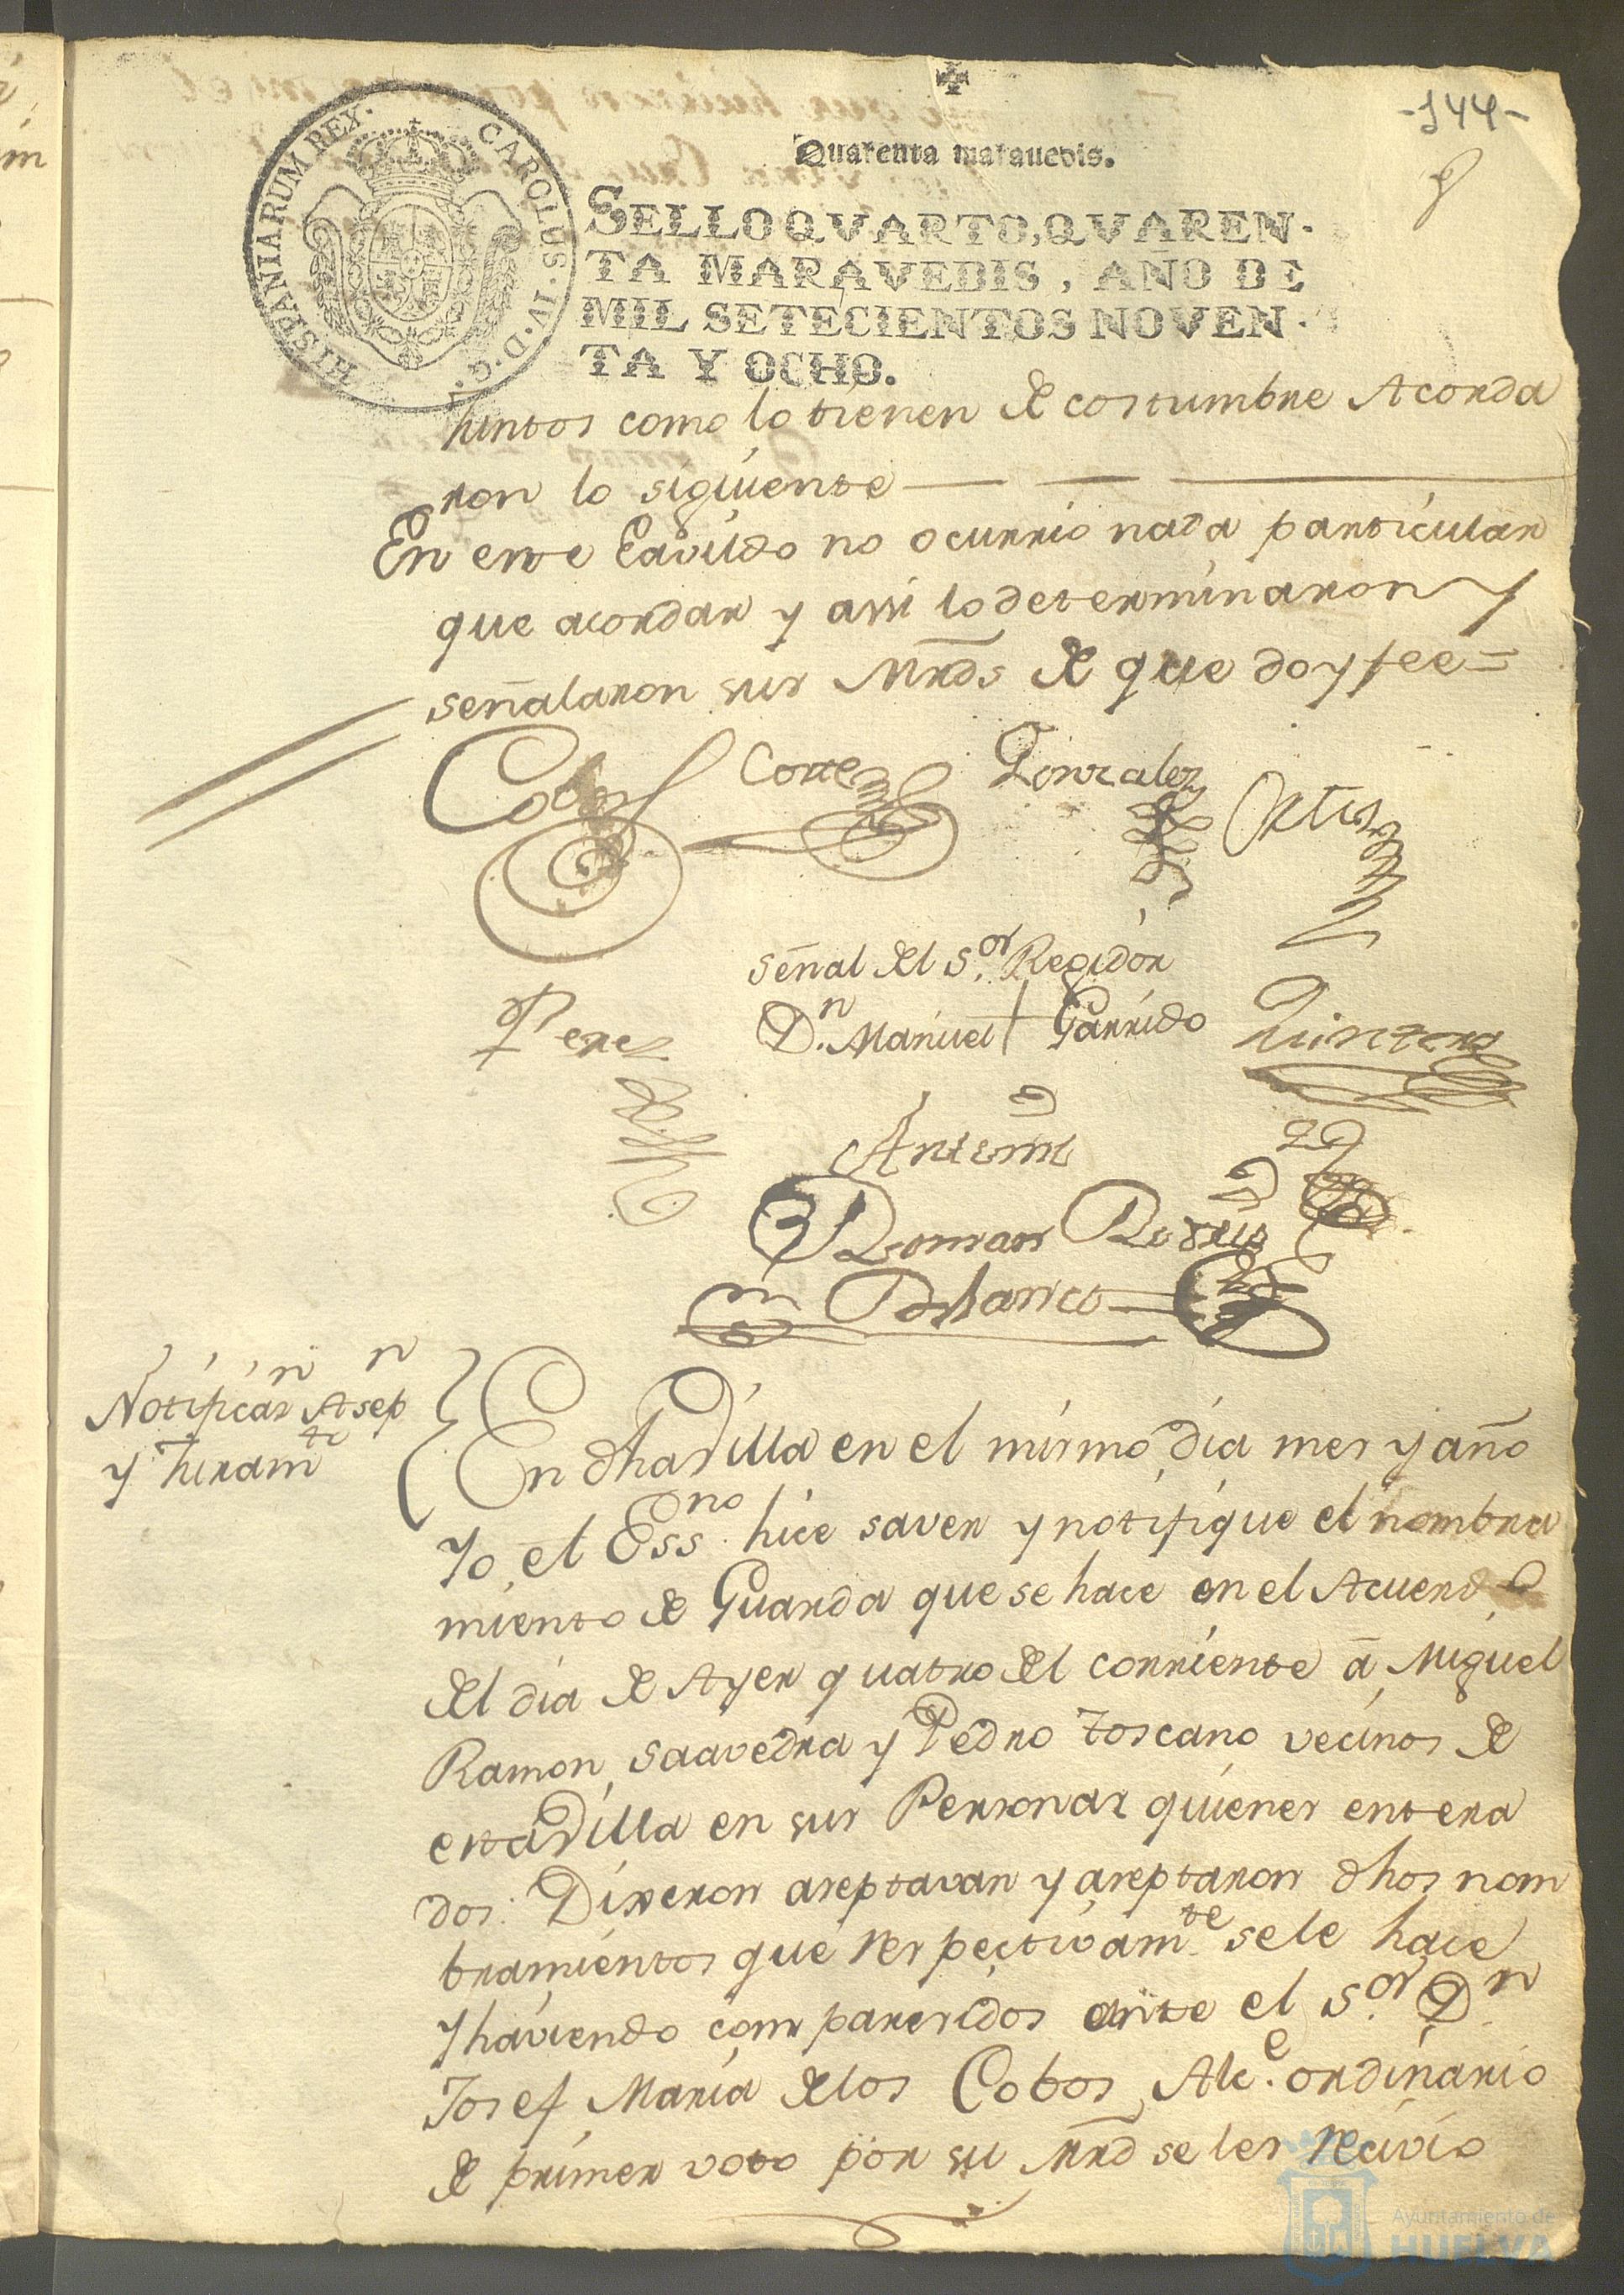 -144-
Quarenta maravedis.
HISPANIARUM REX. CAROLUS. IV. D. G.
SELLO QVARTO, QVAREN-
TA MARAVEDIS, AÑO DE
MIL SETECIENTOS NOVEN-
TA Y OCHO.
Juntos como lo tienen de costumbre Acorda
ron lo siguiente
En este Cavildo no ocurrio nada particular
que acordar y assi lo determinaron y
señalaron sus Mrds de que doy fee=
Cobos Corte Gonzalez Ortiz
Señal del S.or Regidor
Perez D.n Manuel + Garrido Quintero
Antemi
Roman
Blanco
Notificàn Asepn
y Juramto
En dha Villa en el mismo dia mes y año
Yo el Essno hice saver y notifique el nombra
miento de Guarda que se hace en el Acuerdo
del dia de Ayer quatro del corriente à Miguel
Ramon Saavedra y Pedro Toscano vecinos de
esta Villa en sus Personas quienes entera
dos: Dixeron aseptavan y aseptaron dhos nom
bramientos que respectivamte se le hace
y haviendo comparesidos ante el S.or D.n
Josef Maria de los Cobos Alc.e ordinario
de primer voto por su Mrd se les recivio
Ayuntamiento de
HUELVA